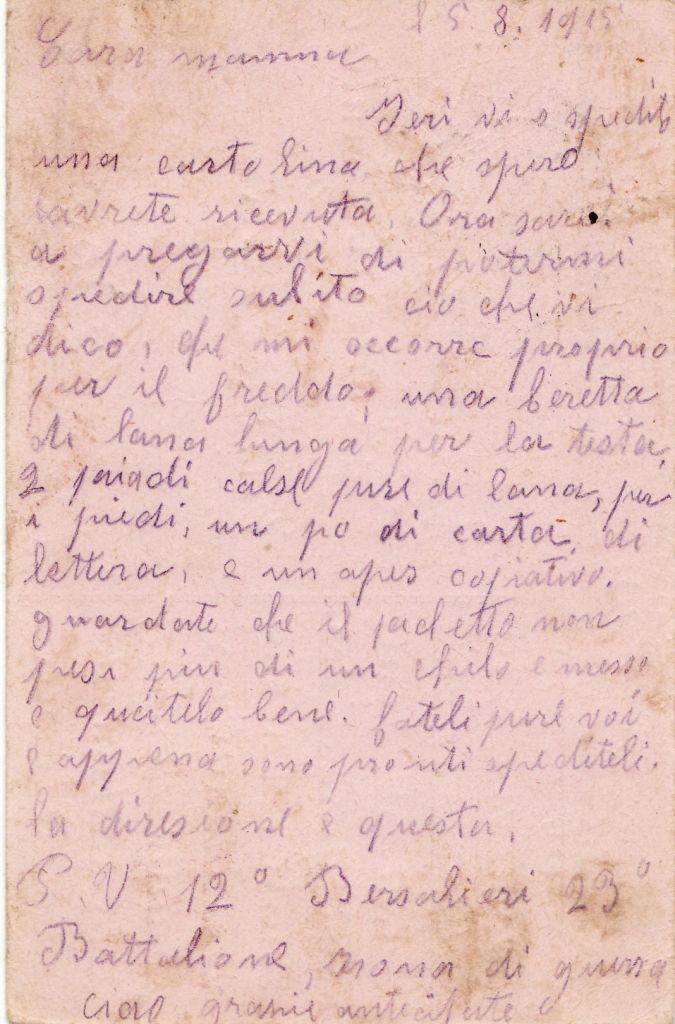 5. 8. 1915
Cara mamma
Ieri vi o spedito
una cartolina, che spero
lavrete ricevuta. Ora sarei
a pregarvi di potermi
spedire subito cio che vi
dico, che mi occorre proprio
per il freddo; una beretta
di lana lunga per la testa,
2 paia di calse pure di lana, per
i piedi, un po di carta, di
lettera, e un apes copiativo.
guardate che il pachetto non
pesi piu di un chilo e messo
e qucitelo bene. fateli pure voi
e appena sono pronti spediteli.
la diresione e questa,
P. V 12° Bersalieri 23°
Battalione, zona di guerra
ciao grasie anticipate